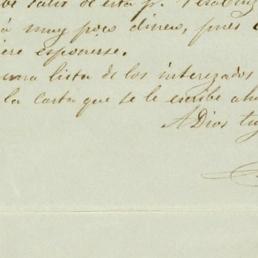 salir de esta p.
á muy poco dinero, pues
iere esponerse.
una lista de los interezados
la carta que se le escribe
A Dios tu